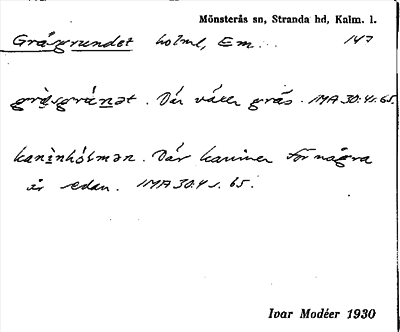 Mönsterås sn, Stranda hd, Kalm. l.
Gräsgrundet holme, Em... 147
gräsgrúnət. Där växer gräs. IMA 30:4 s. 65.
kanìnhólmən. Där kaniner för några
år sedan. IMA 30:4 s. 65.
Ivar Modéer 1930